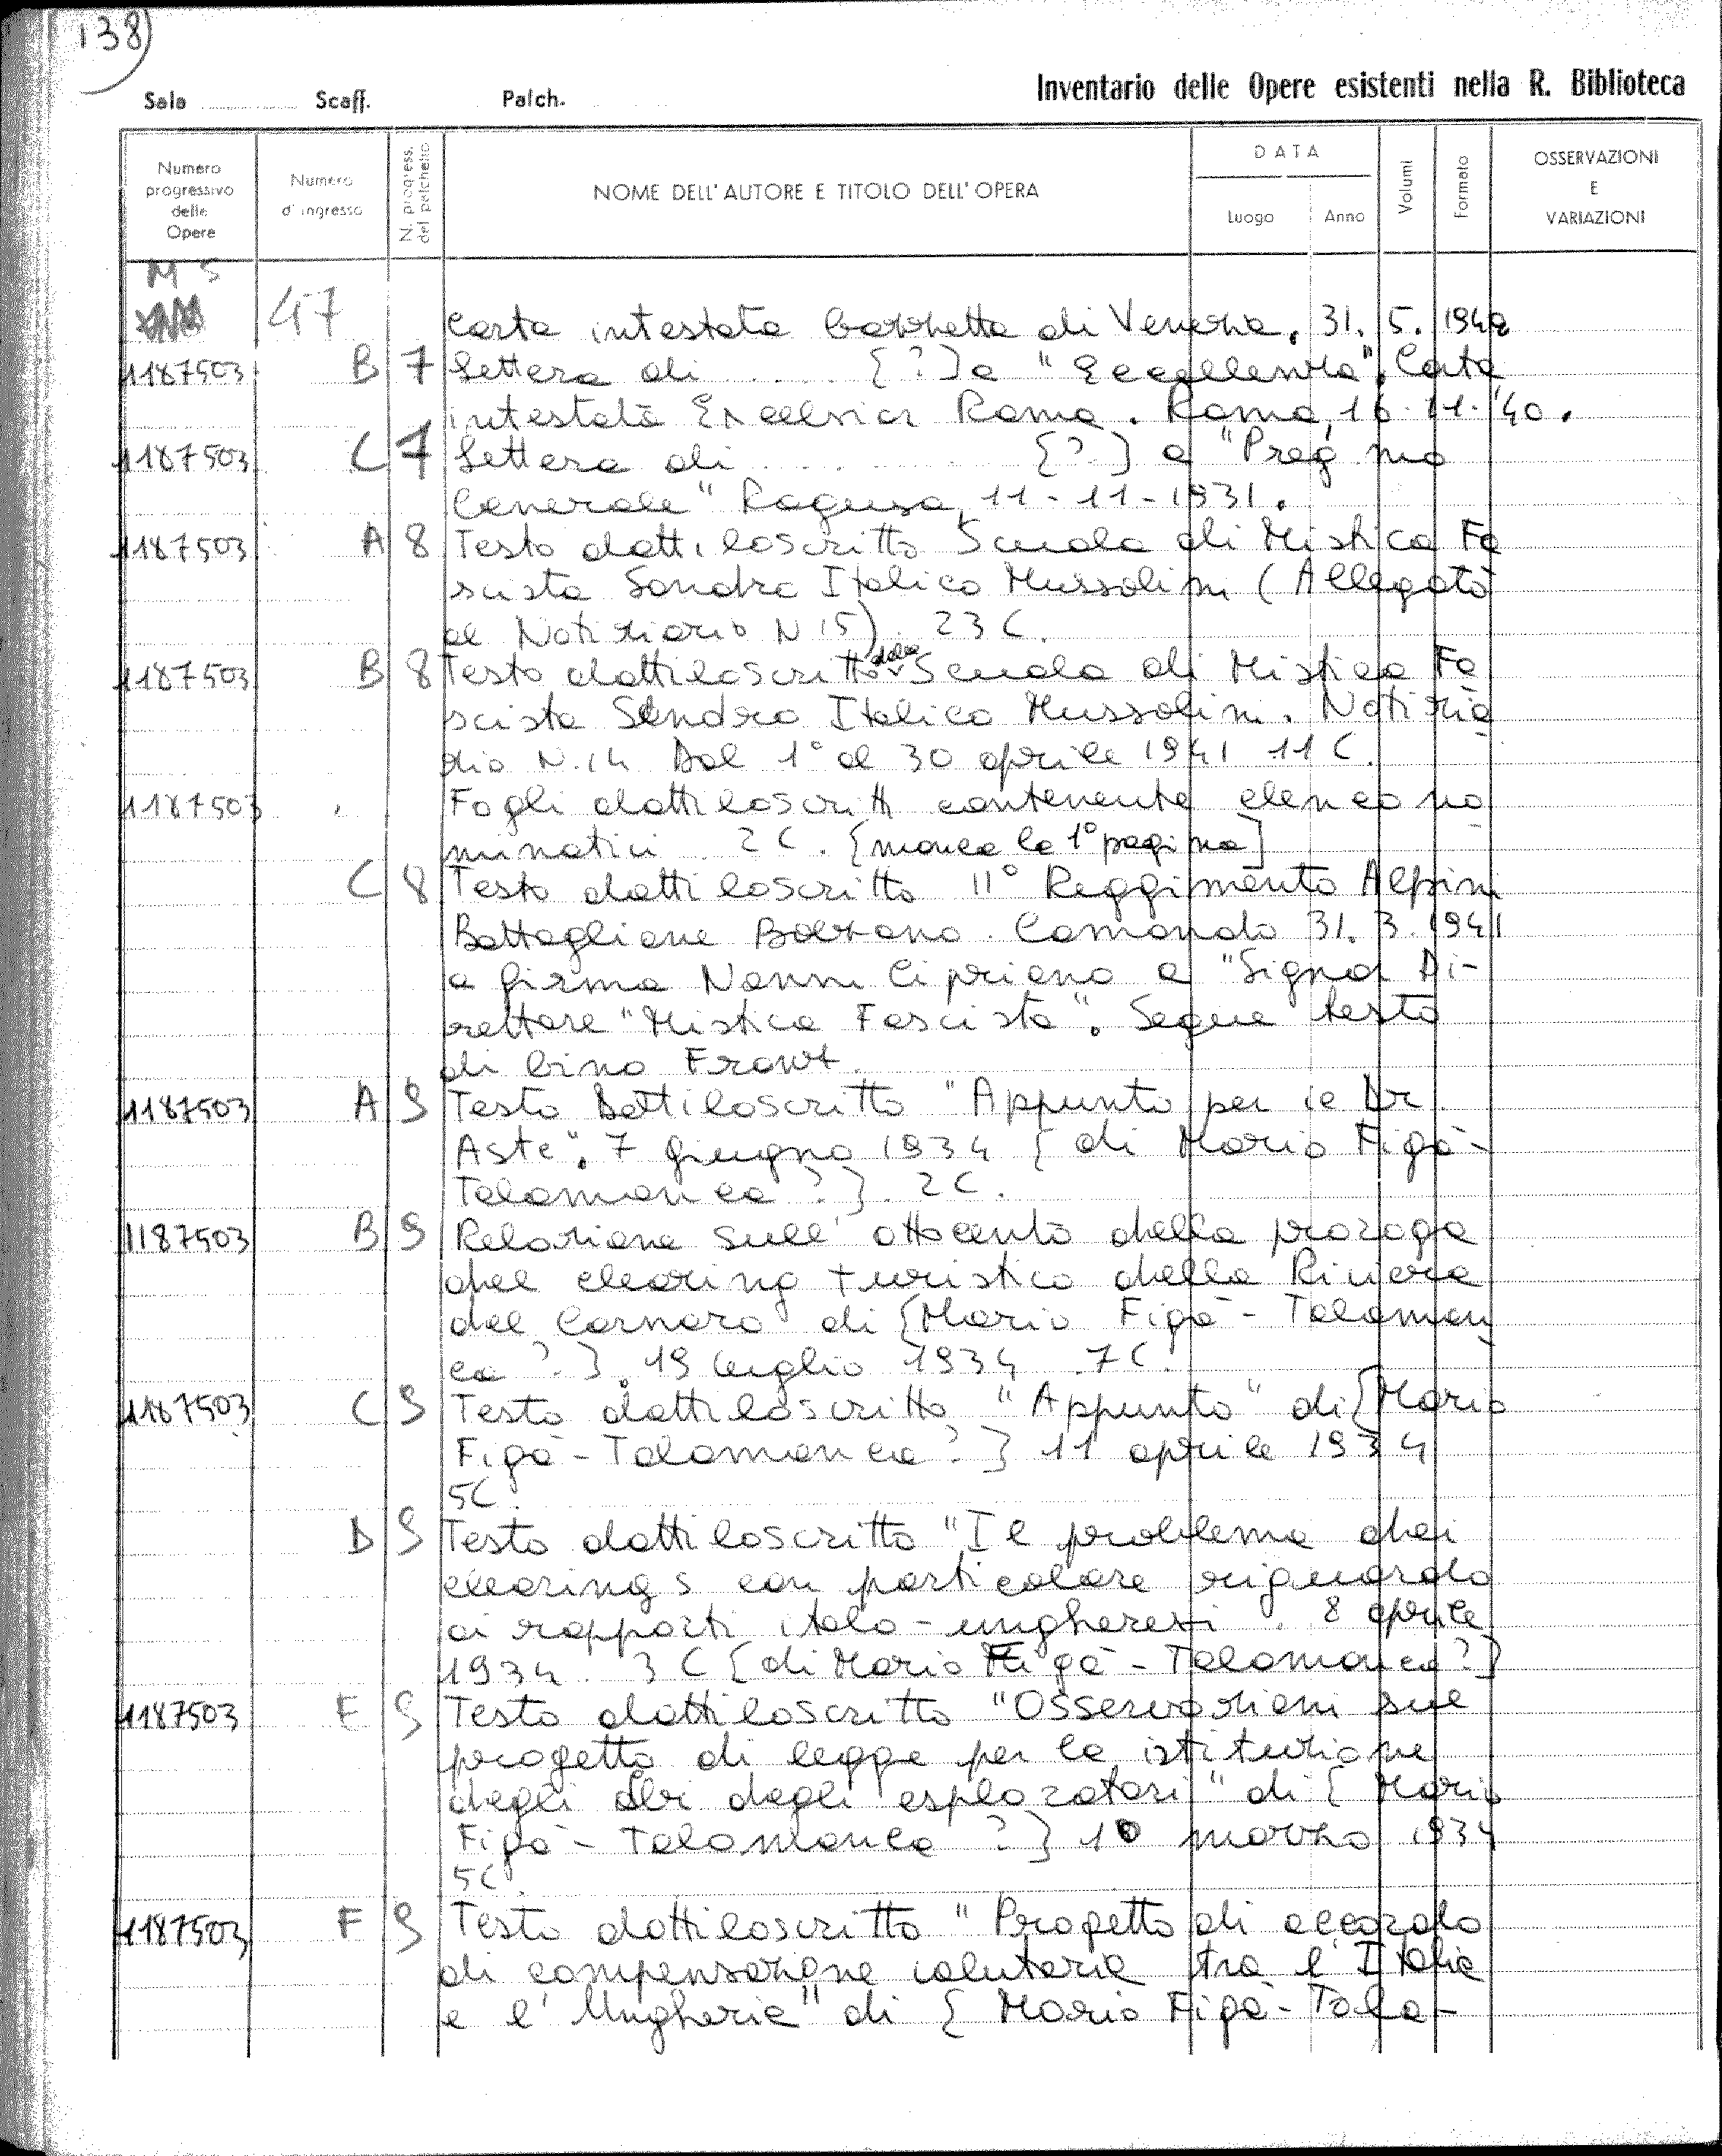 138)
Sala Scaff. Palch. Inventario delle Opere esistenti nella R. Biblioteca
Numero progressivo delle Opere
Numero d'ingresso
N. progress. del palchetto
NOME DELL'AUTORE E TITOLO DELL'OPERA
DATA
Luogo Anno
Volumi
Formato
OSSERVAZIONI E VARIAZIONI
MS
47 Carta intestata Gazzetta di Venezia. 31.5.1942
1187503 B 7 Lettera di ..... [?] a "Eccellenza". Carta
intestata Excelsior Roma. Roma, 16.11.'40.
1187503 C 7 Lettera di ..... [?] a "Preg.mo
Generale" Ragusa, 11-11-1931.
1187503 A 8 Testo dattiloscritto Scuola di Mistica Fa
scista Sandro Italico Mussolini (Allegato
al Notiziario N 15). 23 C.
1187503 B 8 Testo dattiloscritto della Scuola di Mistica Fa
scista Sandro Italico Mussolini. Notizia
rio N.14 Dal 1° al 30 aprile 1941 11 C.
1187503 Fogli dattiloscritti contenente elenco no
minativi 2 C. [manca la 1° pagina]
C 8 Testo dattiloscritto 11° Reggimento Alpini
Battaglione Bolzano. Comando 31.3.1941
a firma Nanni Cipriano a "Signor Di-
rettore "Mistica Fascista". Segue testo
di Gino
1187503 A 9 Testo Dattiloscritto "Appunto per il Dr.
Aste". 7 giugno 1934 [di Mario Figà-
Talamanca?]. 2 C.
1187503 B 9 Relazione sull'ottocento della proroga
del clearing turistico della Riviera
del Carnaro di [Mario Figà-Talaman
ca?]. 19 luglio 1934 7 C.
1187503 C 9 Testo dattiloscritto "Appunto" di [Mario
Figà-Talamanca?] 11 aprile 1934
5 C.
D 9 Testo dattiloscritto "Il problema dei
clearings con particolare riguardo
ai rapporti italo-ungheresi. 8 aprile
1934. 3 C [di Mario Figà-Talamanca?]
1187503 E 9 Testo dattiloscritto "Osservazioni sul
progetto di legge per la istituzione
degli albi degli esploratori" di [Mario
Figà-Talamanca?] 10 marzo 1934
5 C.
1187503 F 9 Testo dattiloscritto "Progetto di accordo
di compensazione valutaria tra l'Italia
e l'Ungheria" di [Mario Figà-Tala-